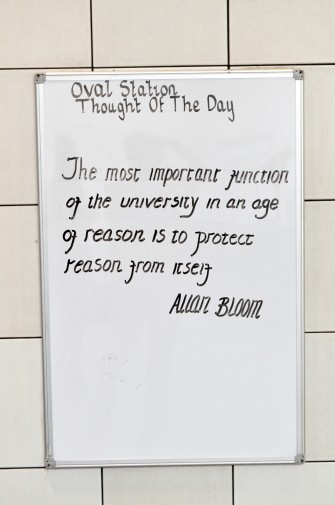 Oval Station
Thought Of The Day
The most important function
of the university in an age
of reason is to protect
reason from itself
Allan Bloom